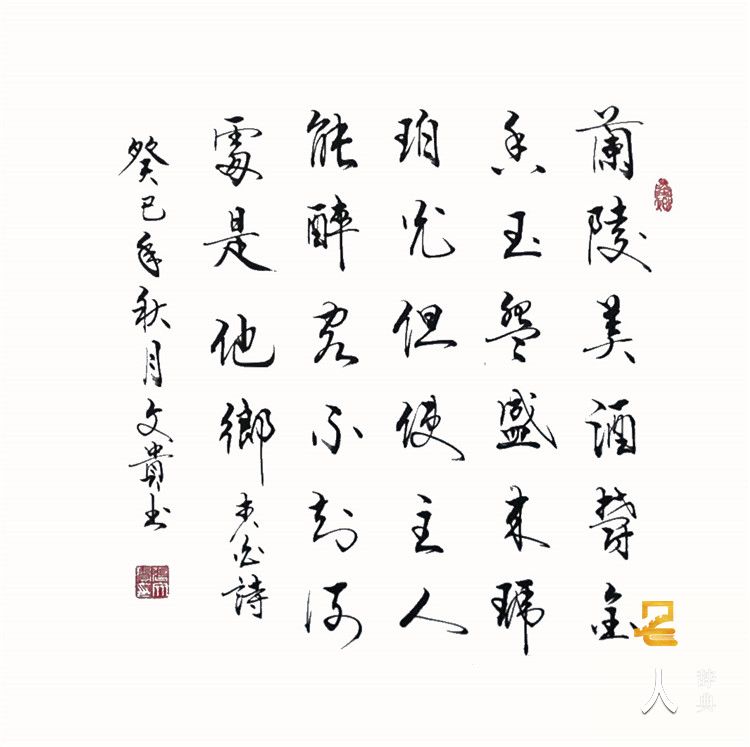 蘭陵美酒鬱金
香玉盌盛来琥
珀光但使主人
能醉客不知何
處是他鄉 李白詩
癸巳年秋月文貴书
名人辞典